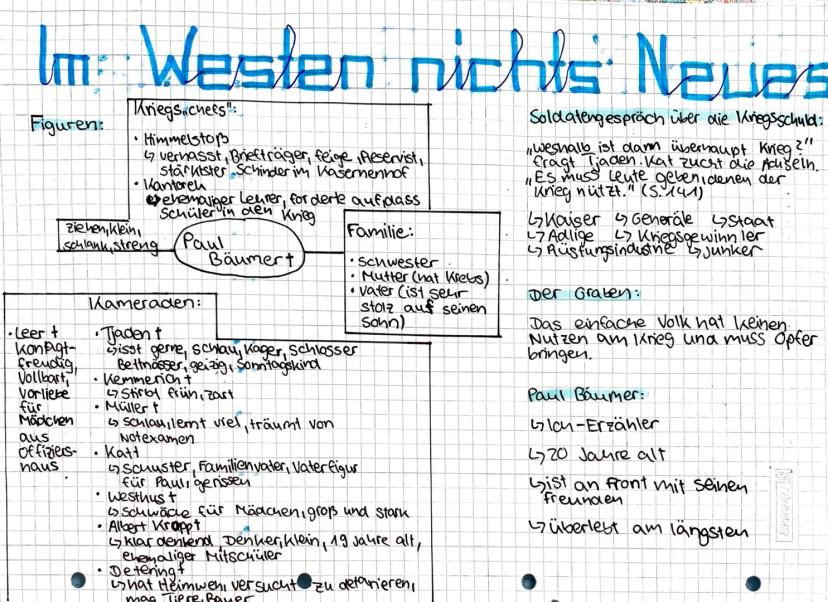 Im Westen nichts Neues
Figuren:
Kriegs„chefs":
· Himmelstoß
↳ verhasst, Briefträger, feige, Reservist,
stärktster Schinder im Kasernenhof
· Kantorek
↳ ehemaliger Lehrer, forderte auf, dass
Schüler in den Krieg
ziehen, klein,
schlank, streng
Paul
Bäumer †
Familie:
· Schwester
· Mutter (hat Krebs)
· Vater (ist sehr
stolz auf seinen
Sohn)
Kameraden:
· Leer †
freudig,
Vollbart,
Vorliebe
für
Mädchen
aus
Offiziers-
haus
· Tjaden †
↳ isst gerne, schlau, hager, Schlosser
Bettnässer, geizig, Sonntagskind
· Kemmerich †
↳ stirbt früh, zart
· Müller †
↳ schlau, lernt viel, träumt von
Notexamen
· Kat †
↳ Schuster, Familienvater, Vaterfigur
für Paul, gerissen
· Westhus †
↳ Schwäche für Mädchen, groß und stark
· Albert Kropp †
↳ klar denkend, Denker, klein, 19 Jahre alt,
ehemaliger Mitschüler
· Detering †
↳ hat Heimweh, versucht zu
mag Tiere, Bauer
Soldatengespräch über die Kriegsschuld:
„Weshalb ist dann überhaupt Krieg?"
fragt Tjaden. Kat zuckt die Achseln.
„Es muss Leute geben, denen der
Krieg nützt." (S.141)
↳ Kaiser ↳ Generäle ↳ Staat
↳ Adlige ↳ Kriegsgewinnler
↳ Rüstungsindustrie ↳ Junker
Der Graben:
Das einfache Volk hat keinen
Nutzen am Krieg und muss Opfer
bringen.
Paul Bäumer:
↳ Ich-Erzähler
↳ 20 Jahre alt
↳ ist an Front mit seinen
Freunden
↳ überlebt am längsten